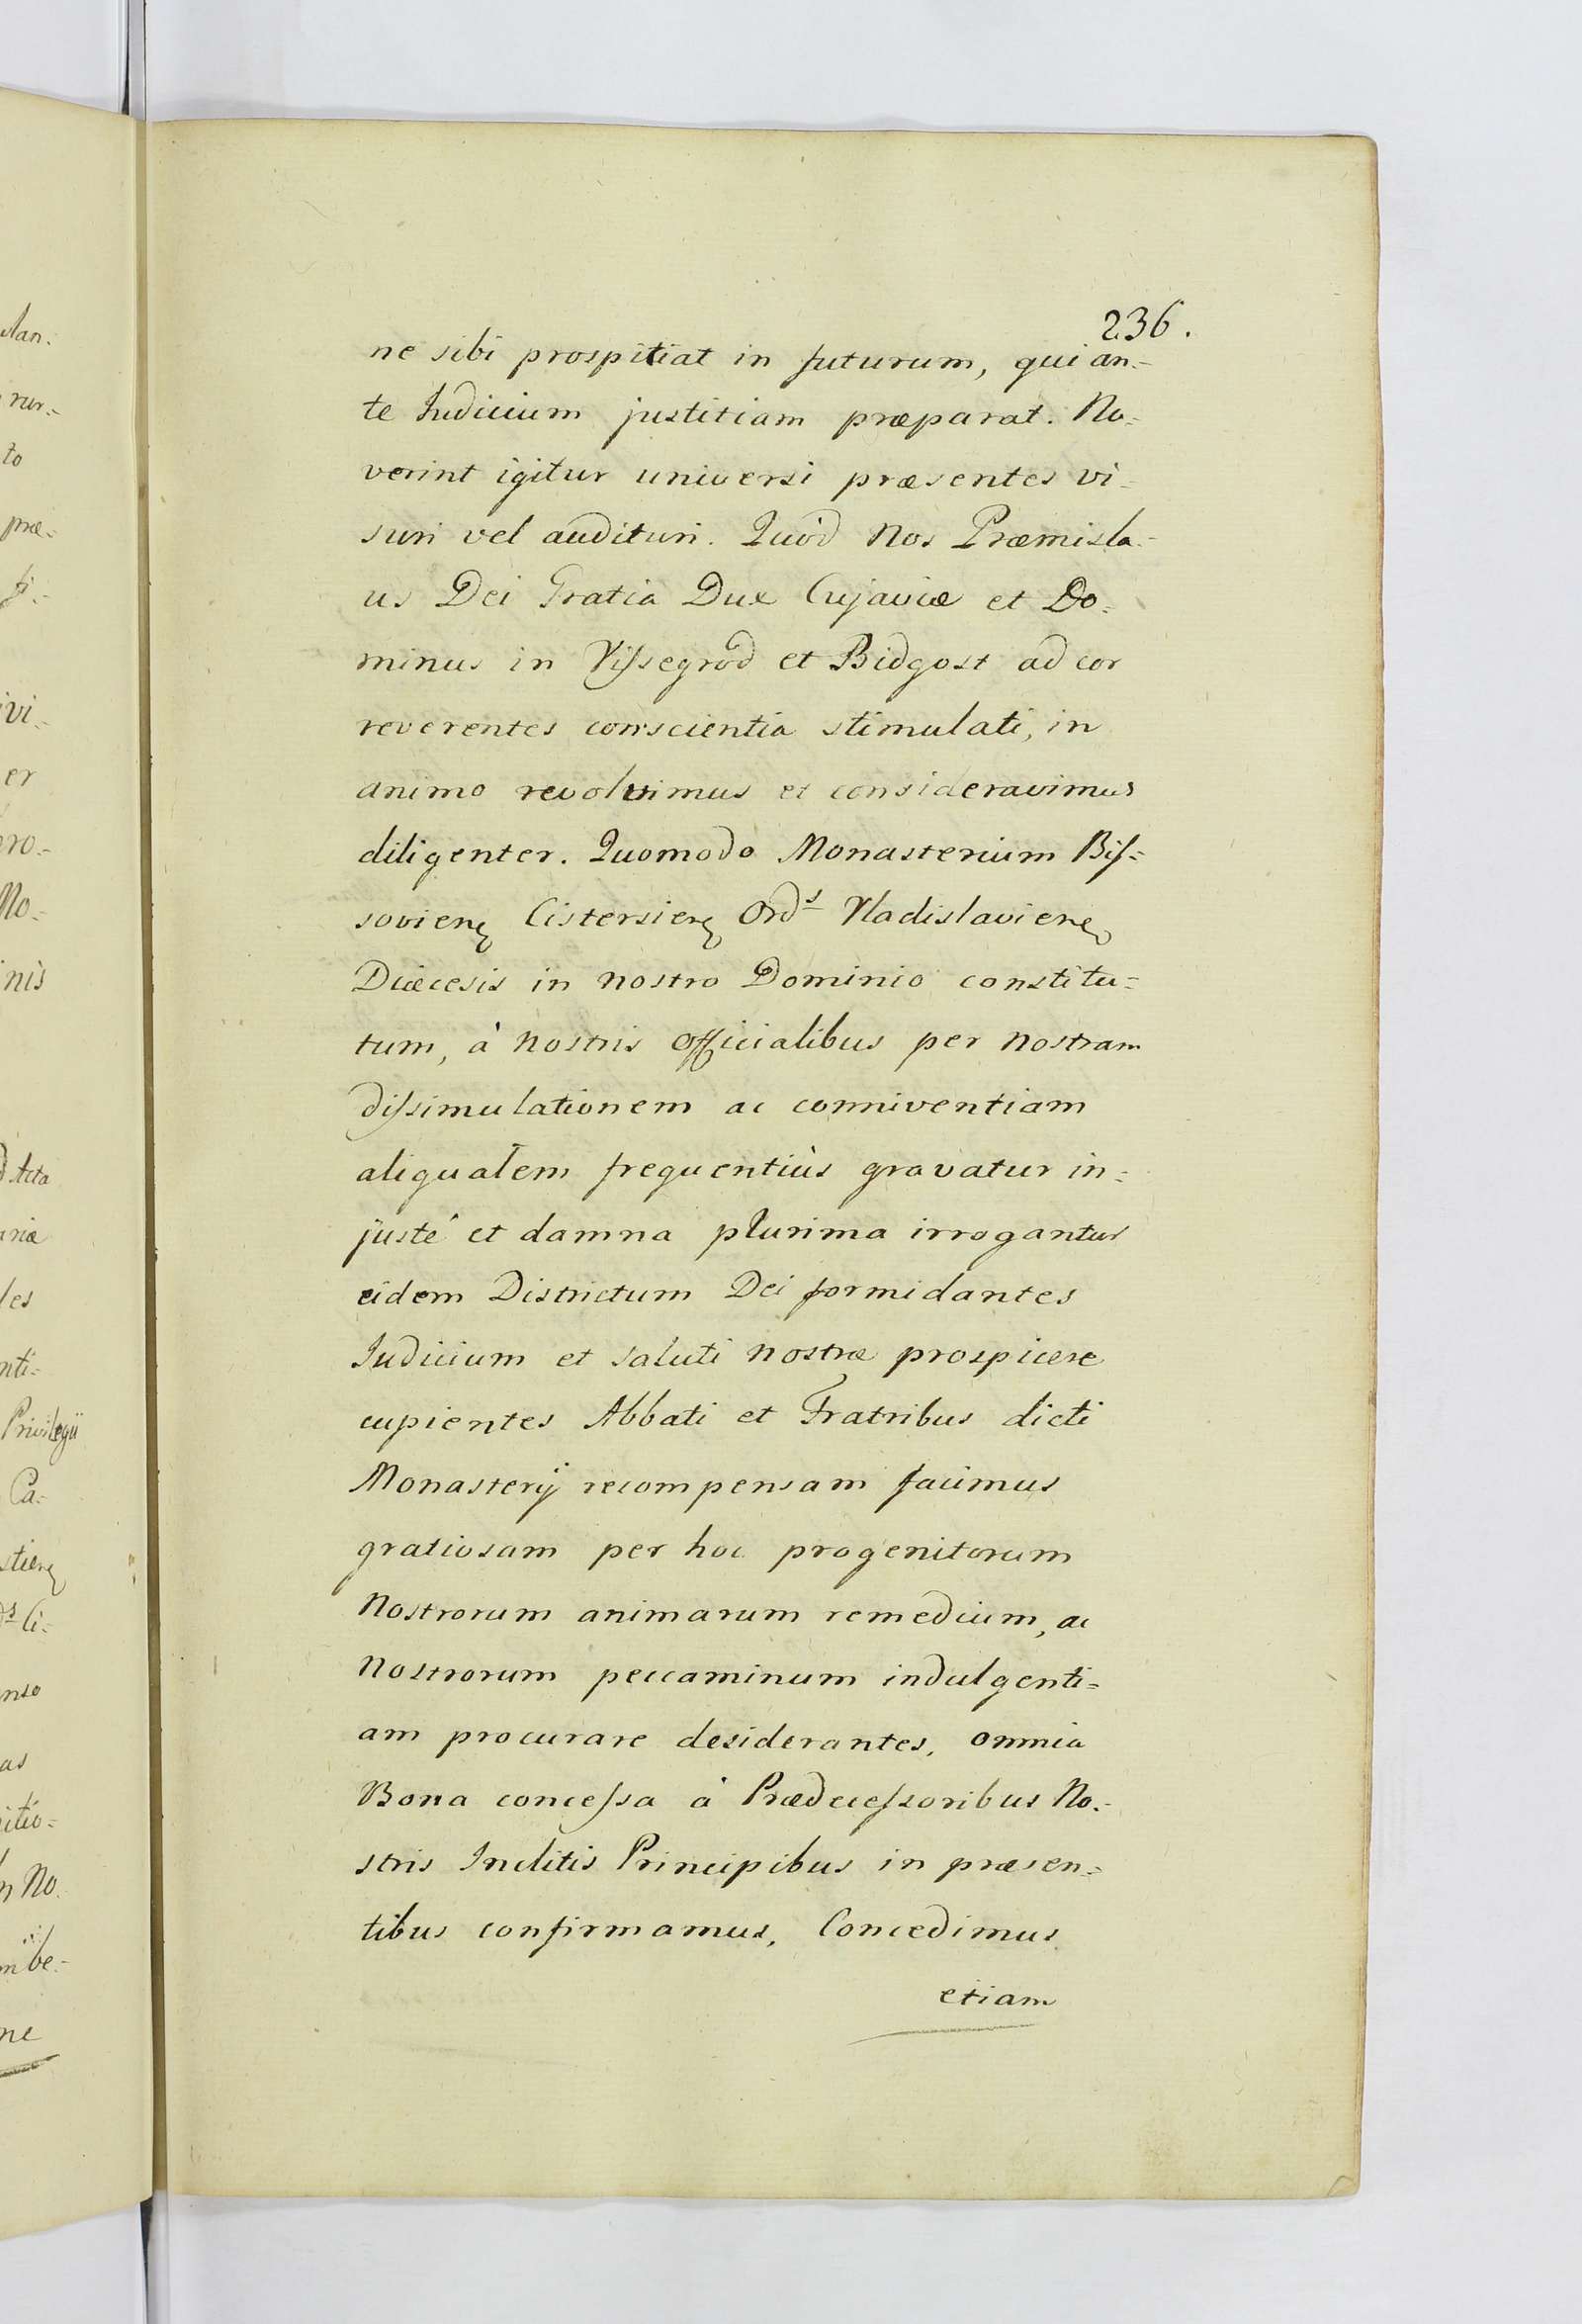 236.
ne sibi prospitiat in futurum, qui an=
te Judicium justitiam præparat. No=
verint igitur universi præsentes vi=
suri vel audituri. Quòd Nos Præmisla=
us Dei Gratia Dux Cujaviæ et Do=
minus in Vissegrod et Bidgost ad cor
reverentes conscientia stimulati, in
animo revolvimus et consideravimus
diligenter. Quomodo Monasterium Bis=
sovien Cistersien Ords Vladislavien
Diæcesis in nostro Dominio constitu=
tum, à nostris officialibus per nostram
dissimulationem ac conniventiam
aliqualem frequentiùs gravatur in=
justè et damna plurima irrogantur
eidem Districtum Dei formidantes
Judicium et saluti nostræ prospicere
cupientes Abbati et Fratribus dicti
Monasterij recompensam facimus
gratiosam per hoc progenitorum
Nostrorum animarum remedium, ac
Nostrorum peccaminum indulgenti=
am procurare desiderantes, omnia
Bona concessa à Prædecessoribus No=
stris Inclitis Principibus in præsen=
tibus confirmamus, Concedimus
etiam